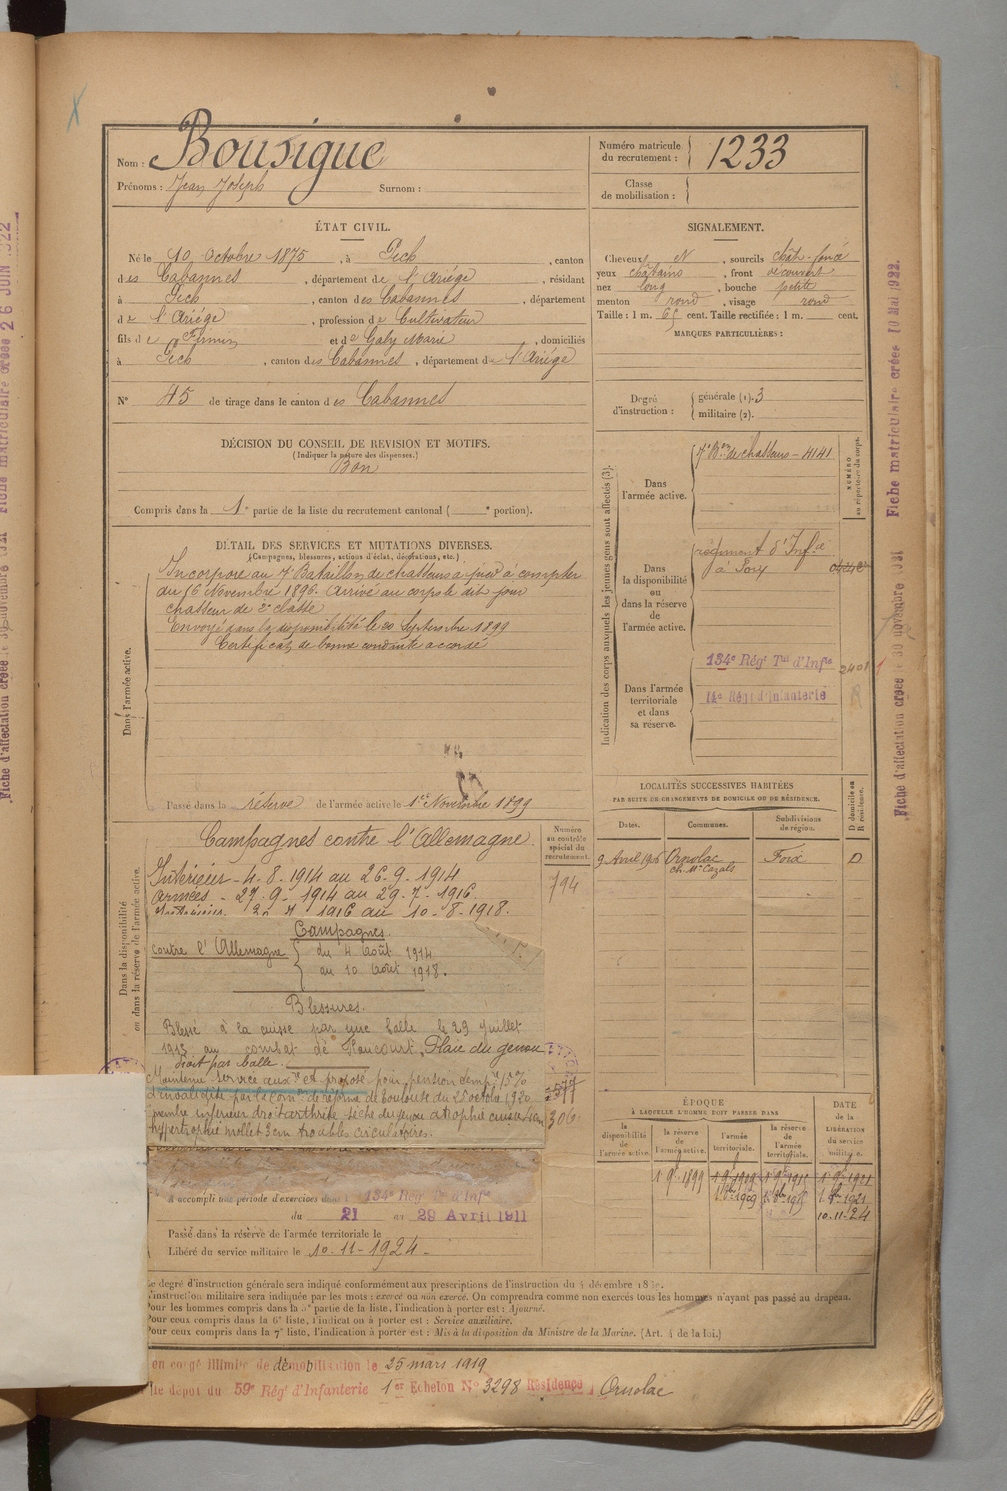 Nom : Bousigue
Prénoms : Jean Joseph Surnom :
Numéro matricule du recrutement : 1233
Classe de mobilisation :
ÉTAT CIVIL.
Né le 10 Octobre 1875, à Pech, canton
des Cabannes, département de l'Ariège, résidant
à Pech, canton des Cabannes, département
de l'Ariège, profession de Cultivateur
fils de Firmin et de Galy Marie, domiciliés
à Pech, canton des Cabannes, département de l'Ariège
N° 45 de tirage dans le canton des Cabannes
SIGNALEMENT.
Cheveux N, sourcils chât-foncé
yeux châtains, front découvert
nez long, bouche petite
menton rond, visage rond
Taille : 1 m. 65 cent. Taille rectifiée : 1 m. cent.
MARQUES PARTICULIÈRES :
Degré d'instruction : générale (1). 3
militaire (2).
DÉCISION DU CONSEIL DE REVISION ET MOTIFS.
(Indiquer la nature des dispenses.)
Bon
Compris dans la 1e partie de la liste du recrutement cantonal ( e portion).
DÉTAIL DES SERVICES ET MUTATIONS DIVERSES.
(Campagnes, blessures, actions d'éclat, décorations, etc.)
Dans l'armée active.
Incorporé au 7e Bataillon de chasseurs à pied à compter
du 16 Novembre 1896. Arrivé au corps le dit jour
chasseur de 2e classe
Envoyé dans la disponibilité le 20 Septembre 1899
Certificat de bonne conduite accordé
Passé dans la réserve de l'armée active le 1er Novembre 1899
Indication des corps auxquels les jeunes gens sont affectés (3).
NUMÉRO au répertoire du corps.
Dans l'armée active.
7e Bon de chasseurs - 4141
Dans la disponibilité ou dans la réserve de l'armée active.
régiment d'Infie
à Foix
Dans l'armée territoriale et dans sa réserve.
134e Régt Tal d'Infie
d'Infanterie
LOCALITÉS SUCCESSIVES HABITÉES
PAR SUITE DE CHANGEMENTS DE DOMICILE OU DE RÉSIDENCE.
D domicile ou R résidence.
Dates. Communes. Subdivisions de région.
Ornolac Foix D
ch. Mr Cazals
Dans la disponibilité ou dans la réserve de l'armée active.
Campagnes contre l'Allemagne
Numéro au contrôle spécial du recrutement.
794
Intérieur - 4. 8. 1914 au 26. 9. 1914
Armées - 27. 9. 1914 au 29. 7. 1916
1916 au 10. 8. 1918.
Campagnes.
contre l'Allemagne du 4 Août 1914
au 10 Août 1918.
Blessures.
Blessé à la cuisse par une balle le 29 juillet
au combat de Plaie du genou
droit par balle.
Maintenu service auxre et proposé pour pension
d'invalidité par la Comon de réforme de Toulouse du 28 octobre 1920
membre inférieur droit arthrite sèche du genou atrophie cuisse
hypertrophie mollet 3 cm troubles circulatoires.
306
A accompli une période d'exercices dans le 134e Régt Tal d'Infie
du 21 au 29 Avril 1911
Passé dans la réserve de l'armée territoriale le
Libéré du service militaire le 10-11-1924 -
ÉPOQUE
À LAQUELLE L'HOMME DOIT PASSER DANS
DATE de la LIBÉRATION du service militaire.
la disponibilité de l'armée active. la réserve de l'armée active. l'armée territoriale. la réserve de l'armée territoriale.
10-11-24
Le degré d'instruction générale sera indiqué conformément aux prescriptions de l'instruction du 4 décembre
L'instruction militaire sera indiquée par les mots : exercé ou non exercé. On comprendra comme non exercés tous les hommes n'ayant pas passé au drapeau.
Pour les hommes compris dans la partie de la liste, l'indication à porter est : Ajourné.
Pour ceux compris dans la 6e liste, l'indication à porter est : Service auxiliaire.
Pour ceux compris dans la 7e liste, l'indication à porter est : Mis à la disposition du Ministre de la Marine. (Art. 4 de la loi.)
en congé illimité de démobilisation le 25 mars 1919
dépôt du 59e Régt d'Infanterie 1er Echelon N° 3298 Résidence Ornolac
Fiche matriculaire créée 10 Mai 1922.
Fiche d'affectation créée le 30 novembre
Fiche matriculaire créée 26 JUIN 1922
Fiche d'affectation créée le